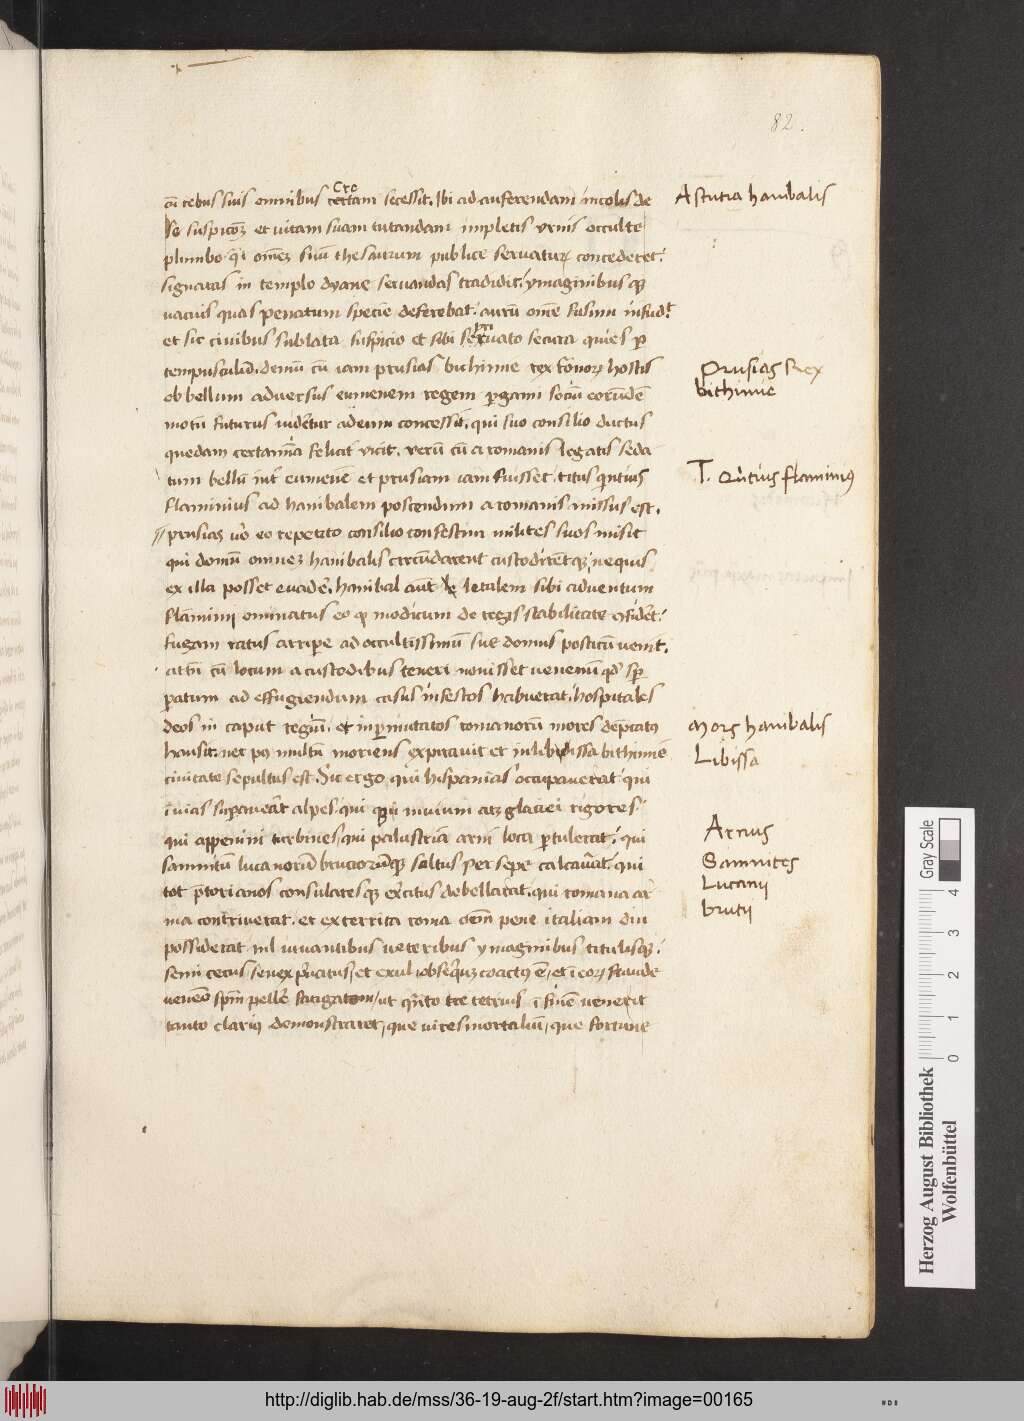 82.
Cre
cū rebus suis omnibus certam secessit. Ibi ad auferendam incolis de
se suspicōem et vitam suam tutandam impletis vrnis occulte
plumbo q̄ omēz suū thesaurum publice seruaturꝝ concederet:
signatas in templo dyane seruandas tradidit. ymaginibusqꝫ
uacuis quas penatum specie deferebat: aurū omē suum infudit
et sic ciuibus sublata suspicio et sibi seruato secura quies ꝑ
tempusculū. demū cū iam prusias bithinie rex hostis
ob bellum aduersus eumenem regem ꝑgami sociū eorundē
motū futurus uidetur ad eum concessit. qui suo consilio ductus
quedam certamīa felicit̄ vicit. verū cū a romanis legatis seda
tum bellū int̄ eumenē et prusiam iam fuisset: titus quintius
flaminius ad hanibalem poscendum a romanis missus est.
prusias u̅o eo repetito consilio confestim milites suos misit
qui domū omnez hanibalis circūdarent custodirētqꝫ: ne quis
ex illa posset euadē. hanibal aūt letalem sibi aduentum
flaminii ominatus eo ꝙ modicum de regis stabilitate
fugam ratus arripe ad occultissimū sue domus posticū uenit.
at ubi cū locum a custodibus teneri nouisset uenenū qd̄
paratum ad effugiendum casus infestos habuerat: hospitales
deos in caput regiū. et inꝑmutatos romanorū mores depcatus
hausit. nec pꝰ multū moriens expirauit et in libissa bithinie
ciuitate sepultus est. Sic ergo qui hispanias occupauerat: qui
inuias suꝑauerat alpes: qui inuium atqꝫ glaciei rigores:
qui appenini turbines, qui palustria arni loca ꝑtulerat: qui
samnitū lucanorū bruciorūqꝫ saltus per sepe calcauerat: qui
tot p̄torianos consularesqꝫ exercitus debellarat. qui romana ar
ma contriuerat. et exterrita roma omē pene italiam diu
possiderat inl uiuantibus ueteribus ymaginibus titulisqꝫ:
semi cecus senex et exul coactus ē, et ī eorꝫ fraude
ueneno spm̄ pellē fatigatum, ut quāto tetrius ī finē uenerit
tanto clariꝰ demonstraret, que uires mortaliū, que fortune
Astutia hanibalis
Prusias Rex
bithinie
T. Quītius flaminius
Mors hanibalis
Libissa
Arnus
Samnites
Lucanij
brutij
Gray Scale
0 1 2 3 4
Herzog August Bibliothek
Wolfenbüttel
http://diglib.hab.de/mss/36-19-aug-2f/start.htm?image=00165